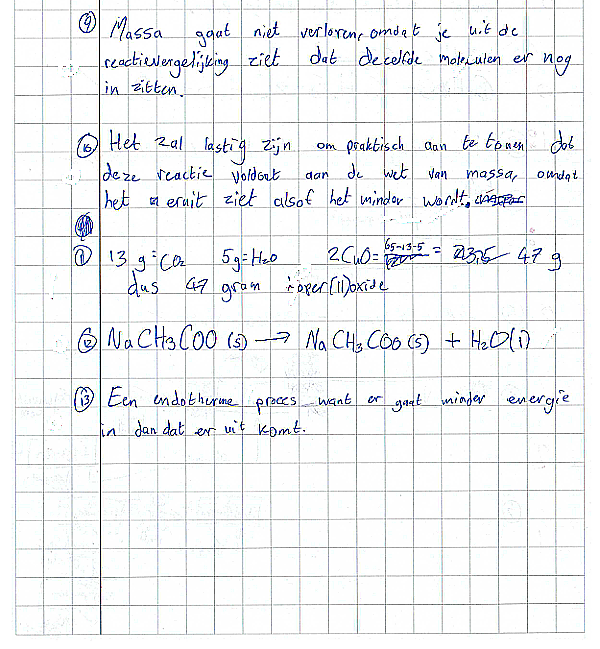 9 Massa gaat niet verloren, omdat je uit de
reactievergelijking ziet dat dezelfde moleculen er nog
in zitten.
10 Het zal lastig zijn om praktisch aan te tonen dat
deze reactie voldoet aan de wet van massa, omdat
het eruit ziet alsof het minder wordt.
11 13 g = CO2 5g = H2O 2CuO = 65-13-5 = 47 g
dus 47 gram koper(II)oxide
12 NaCH3COO (s) → NaCH3COO (s) + H2O(l)
13 Een endotherme proces want er gaat minder energie
in dan dat er uit komt.